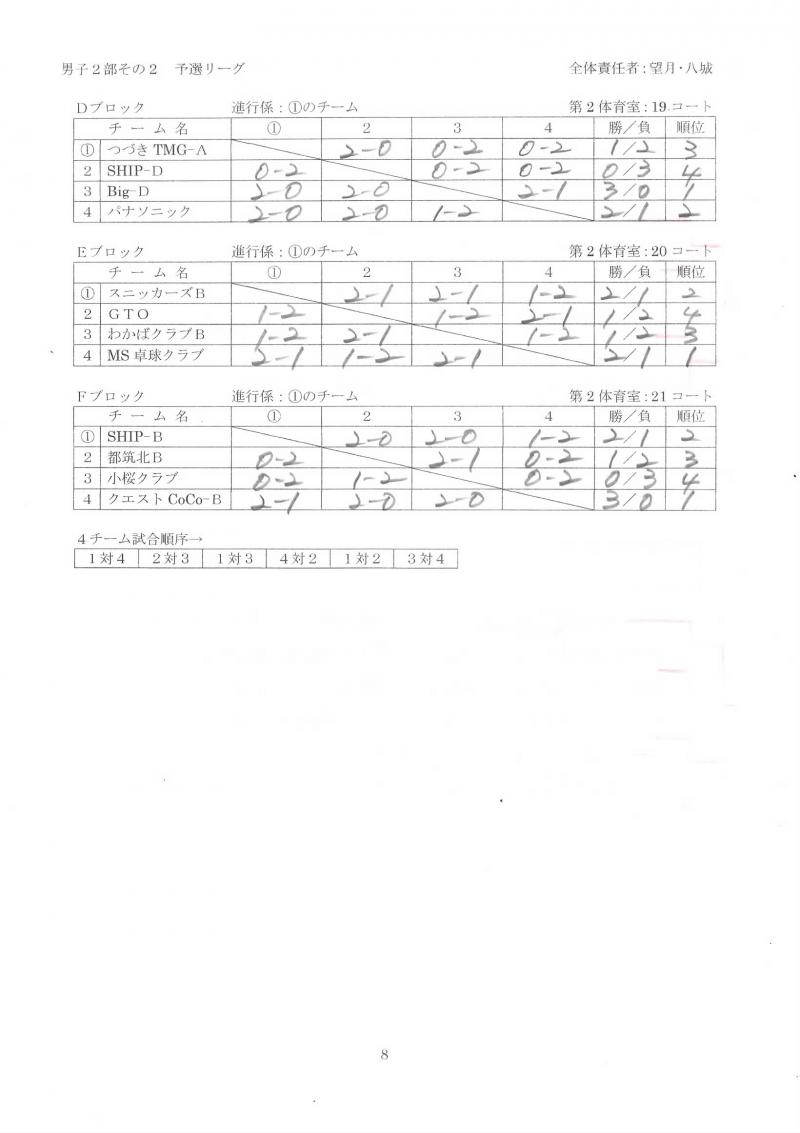 男子２部その２　予選リーグ　全体責任者：望月・八城
Ｄブロック　進行係：①のチーム　第２体育室：19コート
チーム名　①　2　3　4　勝／負　順位
①　つづき TMG-A　2-0　0-2　0-2　1/2　3
2　SHIP-D　0-2　0-2　0-2　0/3　4
3　Big-D　2-0　2-0　2-1　3/0　1
4　パナソニック　2-0　2-0　1-2　2/1　2
Ｅブロック　進行係：①のチーム　第２体育室：20コート
チーム名　①　2　3　4　勝／負　順位
①　スニッカーズＢ　2-1　2-1　1-2　2/1　2
2　ＧＴＯ　1-2　1-2　2-1　1/2　4
3　わかばクラブＢ　1-2　2-1　1-2　1/2　3
4　MS 卓球クラブ　2-1　1-2　2-1　2/1　1
Ｆブロック　進行係：①のチーム　第２体育室：21コート
チーム名　①　2　3　4　勝／負　順位
①　SHIP-B　2-0　2-0　1-2　2/1　2
2　都筑北Ｂ　0-2　2-1　0-2　1/2　3
3　小桜クラブ　0-2　1-2　0-2　0/3　4
4　クエスト CoCo-B　2-1　2-0　2-0　3/0　1
４チーム試合順序→
１対４　２対３　１対３　４対２　１対２　３対４
8